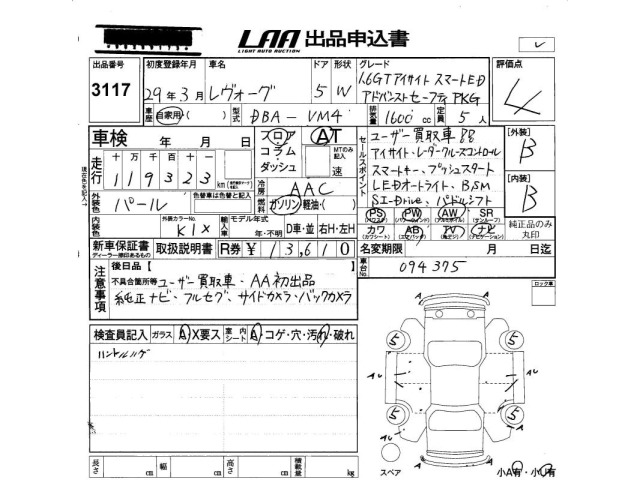 LAA 出品申込書
LIGHT AUTO AUCTION
レ
出品番号 3117
初度登録年月 29年3月
車名 レヴォーグ
ドア 5 形状 W
グレード 1.6GTアイサイト スマートED
アドバンストセーフティPKG
評価点 4
車歴 自家用・( )
型式 DBA-VM4
排気量 1600cc 定員 5人
車検 年 月 日
フロア コラム ダッシュ
AT
MTのみ記入 速
セールスポイント
ユーザー買取車
アイサイト・レーダークルーズコントロール
スマートキー、プッシュスタート
LEDオートライト、BSM
SI-Drive、パドルシフト
【外装】 B
【内装】 B
走行 十万千百十 119323 km
冷房 AAC
外装色 パール
色替車は色替と記入
燃料 ガソリン 軽油・( )
PS PW AW SR
カワ AB TV ナビ
純正品のみ丸印
内装色 外装カラーNo. K1X
輸入車 モデル年式 年・不明 D車・並 右H・左H
新車保証書 取扱説明書 R券 ¥13,610
ディーラー捺印あるもの
名変期限 月 日迄
注意事項 後日品【 】
不具合箇所等 ユーザー買取車・AA初出品
純正ナビ・フルセグ、サイドカメラ・バックカメラ
車台No. 094375
ロック車
検査員記入 ガラス A X要ス 室内シート A・コゲ・穴・汚れ・破れ
ハンドルハゲ
5 5
AU AU
5 5
AU
スペア
小A有・小U有
長さ cm 幅 cm 高さ cm 積載量 kg